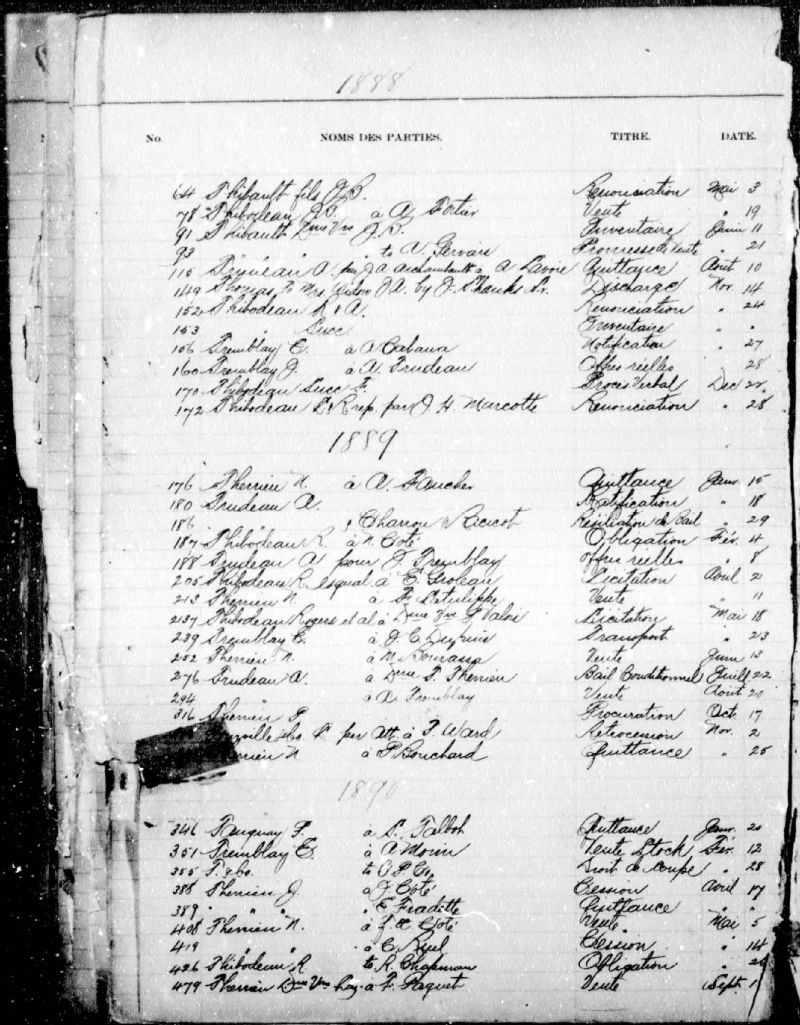 1888
No. NOMS DES PARTIES. TITRE. DATE.
64 Thibault fils J.B. Renonciation Mai 3
78 Thibodeau J.B. à A. Fortier Vente " 19
91 Thibault Dme Vve J.B. Inventaire Juin 11
93 " " to A. Gervais Promesse de Vente " 21
115 A. par J.A. Archambault à A. Lavoie Quittance Aout 10
149 Thomas Mrs Widow J.A. by J. Shanks Sr. Discharge Nov. 14
152 Thibodeau R & A. Renonciation " 24
153 " Succ Inventaire " "
156 Tremblay C. à A Cabana Notification " 27
160 Tremblay J. à A. Trudeau Offres réelles 28
170 Thibodeau Succ F. Procès Verbal Dec 22
172 Thibodeau R rep. par J H. Marcotte Renonciation " 28
1889
176 Therrien N. à A. Faucher Quittance Janv. 15
180 Trudeau A. Ratification " 18
186 " Charron & Résiliation de Bail " 29
187 Thibodeau R. à N. Coté Obligation Fév. 4
188 Trudeau A pour J. Tremblay offres réelles " 8
205 Thibodeau R. à E. Groleau Licitation Avril 2
213 Therrien N. à Vente " 11
237 Thibodeau Rogers et al à Dme Vve F Valois Licitation Mai 18
239 Tremblay C. à J. C. Transport " 23
252 Therrien N. à N. Bourassa Vente Juin 13
276 Trudeau A. à Dme F. Therrien Bail Conditionnel Juill 22
294 à A. Tremblay Vente Aout 20
316 Therrien F. Procuration Oct. 17
par att. à F. Ward Retrocession Nov. 2
errien N à P Bouchard Quittance " 25
1890
346 Tanguay F. à S. Talbot Quittance Janv. 20
351 Tremblay E. à A Morin Vente Stock Fév. 12
355 T. & Co. to O P Co. Droit de coupe " 28
388 Therrien J. à J. Coté Cession Avril 17
389 " " " E. Fradette Quittance " "
408 Therrien N. à F. X Coté Vente Mai 5
419 " " à C. Ruel Cession " 14
426 Thibodeau R to R. Chapman Obligation " 26
479 Therrien Dme Vve à F. Paquet Vente Sept. 1